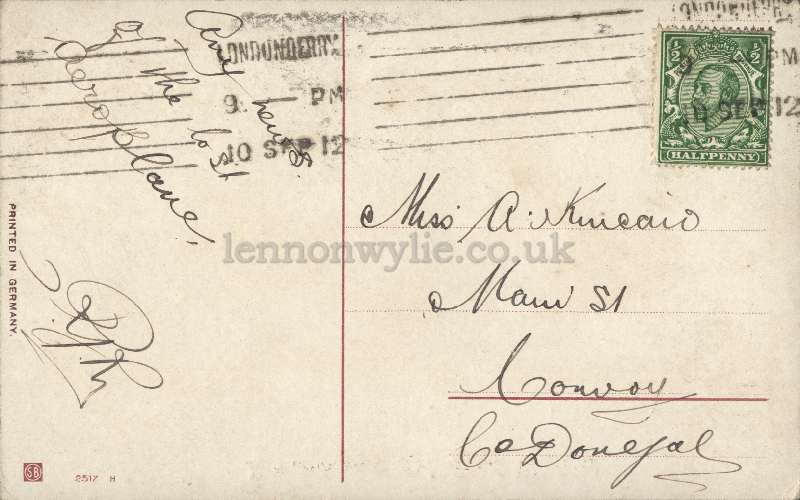 Any news.
of the lost
Aeroplane.
LONDONDERRY
9. PM
10 SEP 12
LONDONDERRY
PM
10 SEP 12
½ ½
HALFPENNY
Miss A. Kincaid
Main St
Convoy
Co Donegal
lennonwylie.co.uk
PRINTED IN GERMANY.
SB
2517 H